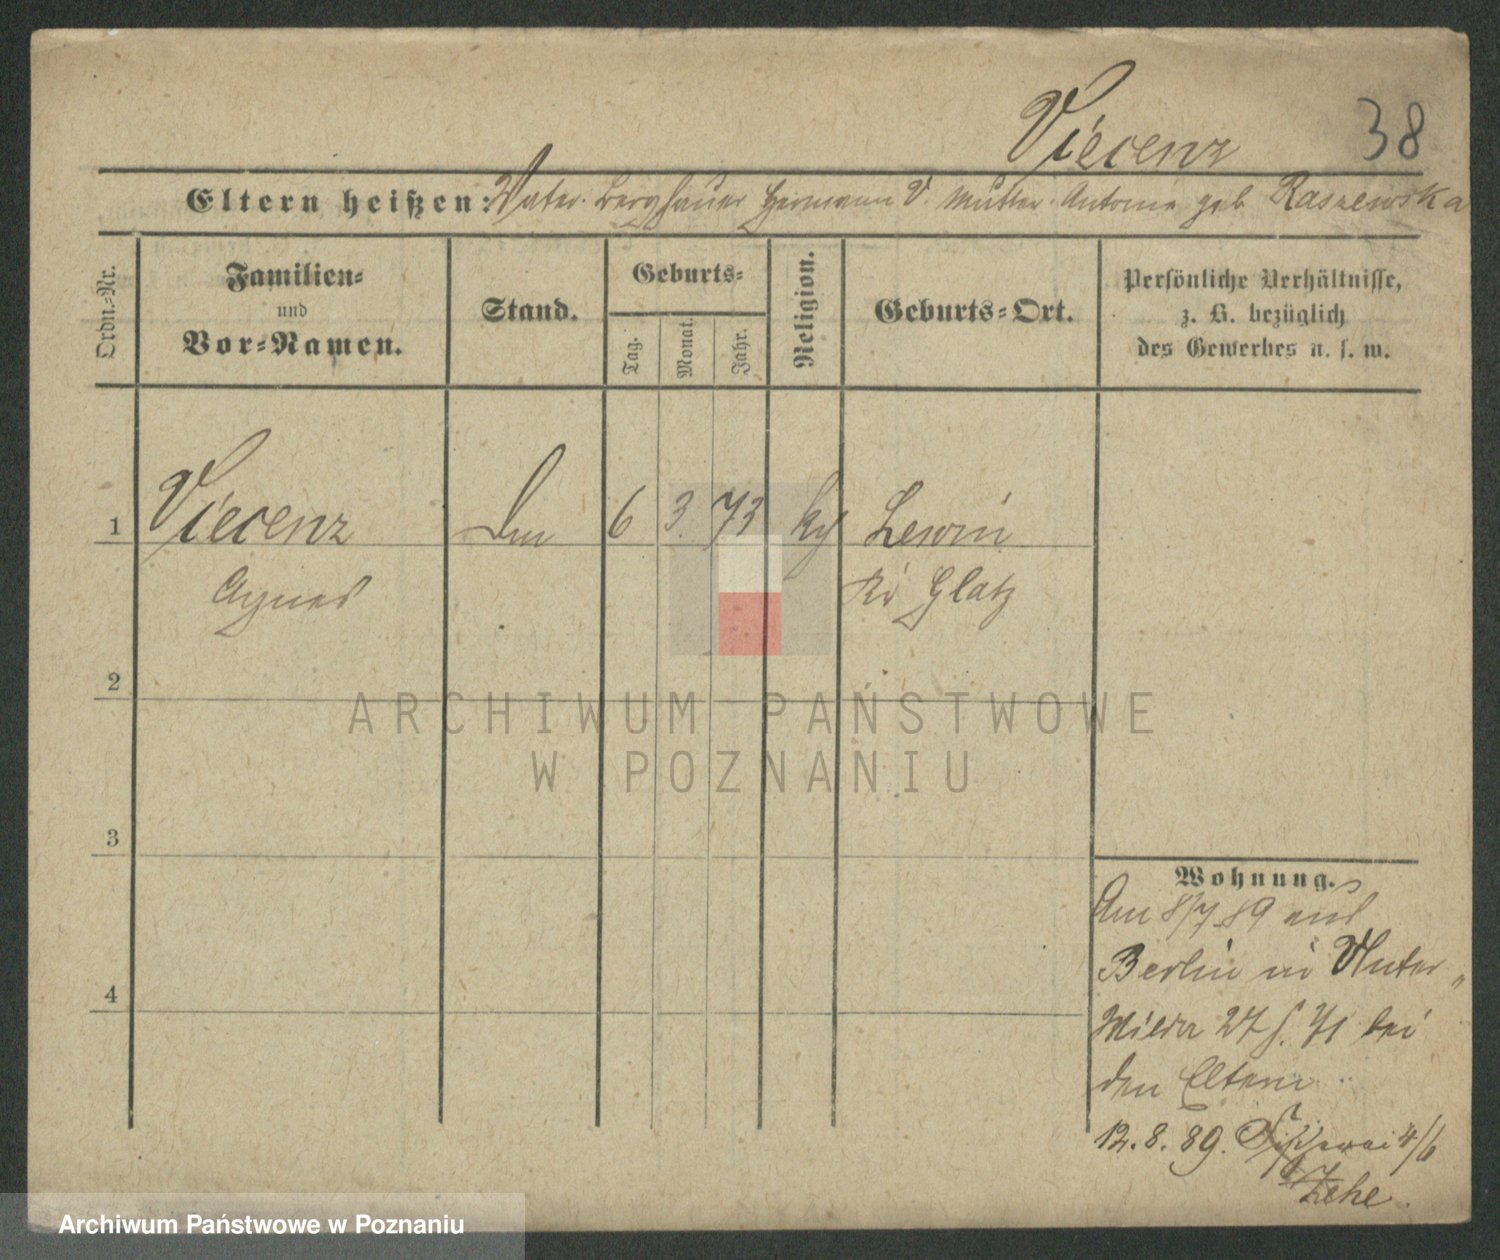 Viecenz 38
Eltern heißen: Vater. Berghauer Hermann V. Mutter. Antonie geb Raszewska
Ordn.-Nr.
Familien-
und
Vor-Namen.
Stand.
Geburts-
Tag.
Monat.
Jahr.
Religion.
Geburts-Ort.
Persönliche Verhältnisse,
z. B. bezüglich
des Gewerbes u. s. w.
1 Viecenz 6 3. 73 Lewin
Agnes Kr Glatz
2
3
4
Wohnung.
Am 8/7 89 aus
Berlin in Unter-
Wilda 27 bei
den Eltern
12. 8. 89. Fischerei 4/6
Zehe.
ARCHIWUM PAŃSTWOWE
W POZNANIU
Archiwum Państwowe w Poznaniu